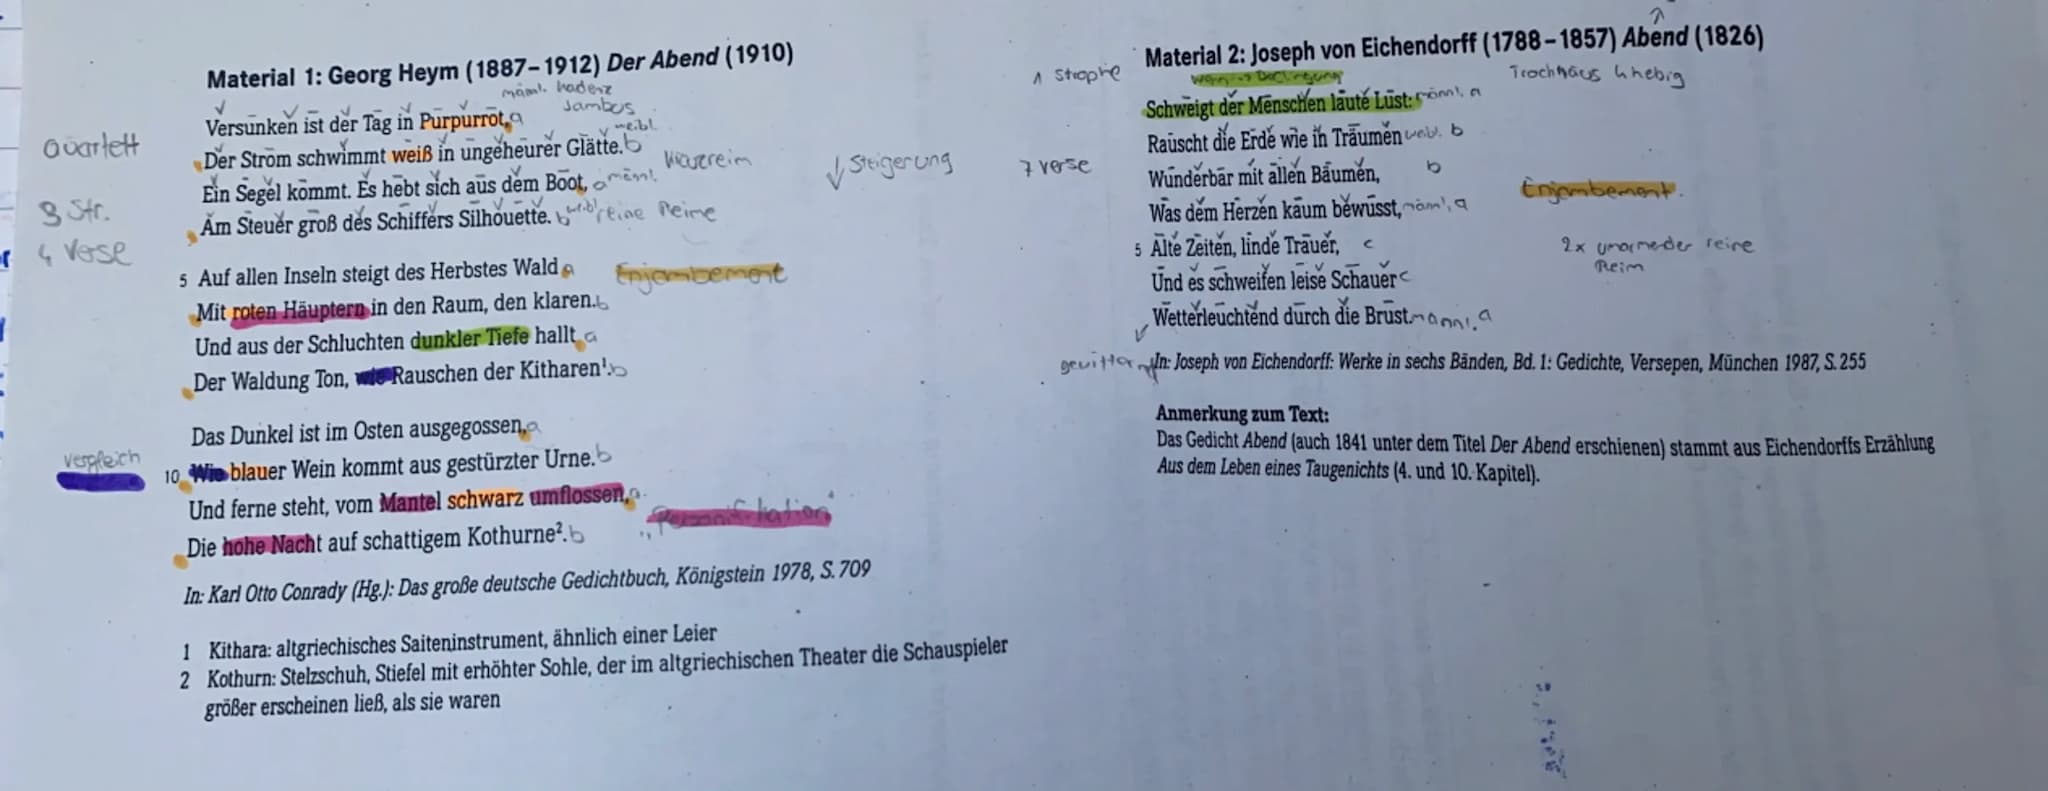 Material 1: Georg Heym (1887–1912) Der Abend (1910)
männl. Kadenz
Jambus
Versunken ist der Tag in Purpurrot, a
weibl.
Quartett
Der Strom schwimmt weiß in ungeheurer Glätte. b
Ein Segel kommt. Es hebt sich aus dem Boot, a männl.
↓ Steigerung
3 Str.
Am Steuer groß des Schiffers Silhouette. b weibl. reine Reime
4 Verse
5 Auf allen Inseln steigt des Herbstes Wald a
Enjambement
Mit roten Häuptern in den Raum, den klaren. b
Und aus der Schluchten dunkler Tiefe hallt a
Der Waldung Ton, wie Rauschen der Kitharen¹. b
Das Dunkel ist im Osten ausgegossen, a
vergleich
10 Wie blauer Wein kommt aus gestürzter Urne. b
Und ferne steht, vom Mantel schwarz umflossen, a
"Personifikation"
Die hohe Nacht auf schattigem Kothurne². b
In: Karl Otto Conrady (Hg.): Das große deutsche Gedichtbuch, Königstein 1978, S. 709
1 Kithara: altgriechisches Saiteninstrument, ähnlich einer Leier
2 Kothurn: Stelzschuh, Stiefel mit erhöhter Sohle, der im altgriechischen Theater die Schauspieler
größer erscheinen ließ, als sie waren
Material 2: Joseph von Eichendorff (1788–1857) Abend (1826)
1 Strophe
Trochäus 4hebig
Schweigt der Menschen laute Lust: männl. a
Rauscht die Erde wie in Träumen weibl. b
7 Verse
Wunderbar mit allen Bäumen, b
Enjambement.
Was dem Herzen kaum bewusst, männl. a
5 Alte Zeiten, linde Trauer, c
2x umarmender reine
Reim
Und es schweifen leise Schauer c
Wetterleuchtend durch die Brust. männl. a
In: Joseph von Eichendorff: Werke in sechs Bänden, Bd. 1: Gedichte, Versepen, München 1987, S. 255
Anmerkung zum Text:
Das Gedicht Abend (auch 1841 unter dem Titel Der Abend erschienen) stammt aus Eichendorffs Erzählung
Aus dem Leben eines Taugenichts (4. und 10. Kapitel).